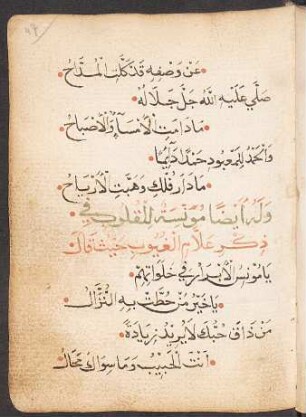 عَنْ وَصْفِهِ قَدْ كَلَّتِ الْمُدَّاحُ
صَلَّى عَلَيْهِ اللهُ جَلَّ جَلَالُهُ
مَا دَامَتِ الْأَمْسَاءُ وَالْأَصْبَاحُ
وَالْحَمْدُ لِلْمَعْبُودِ حَمْدًا دَائِمًا
مَا دَارَ فُلْكٌ وَهَبَّتِ الْأَرْيَاحُ
وَلَهُ أَيْضًا مُؤْنِسَةٌ لِلْقُلُوبِ فِي
ذِكْرِ عَلَّامِ الْغُيُوبِ حَيْثُ قَالَ
يَا مُؤْنِسَ الْأَبْرَارِ فِي خَلَوَاتِهِمْ
يَا خَيْرَ مَنْ حَطَّتْ بِهِ النُّزَّالُ
مَنْ ذَاقَ حُبَّكَ لَا يُرِيدُ زِيَادَةً
أَنْتَ الْحَبِيبُ وَمَا سِوَاكَ مُحَالُ